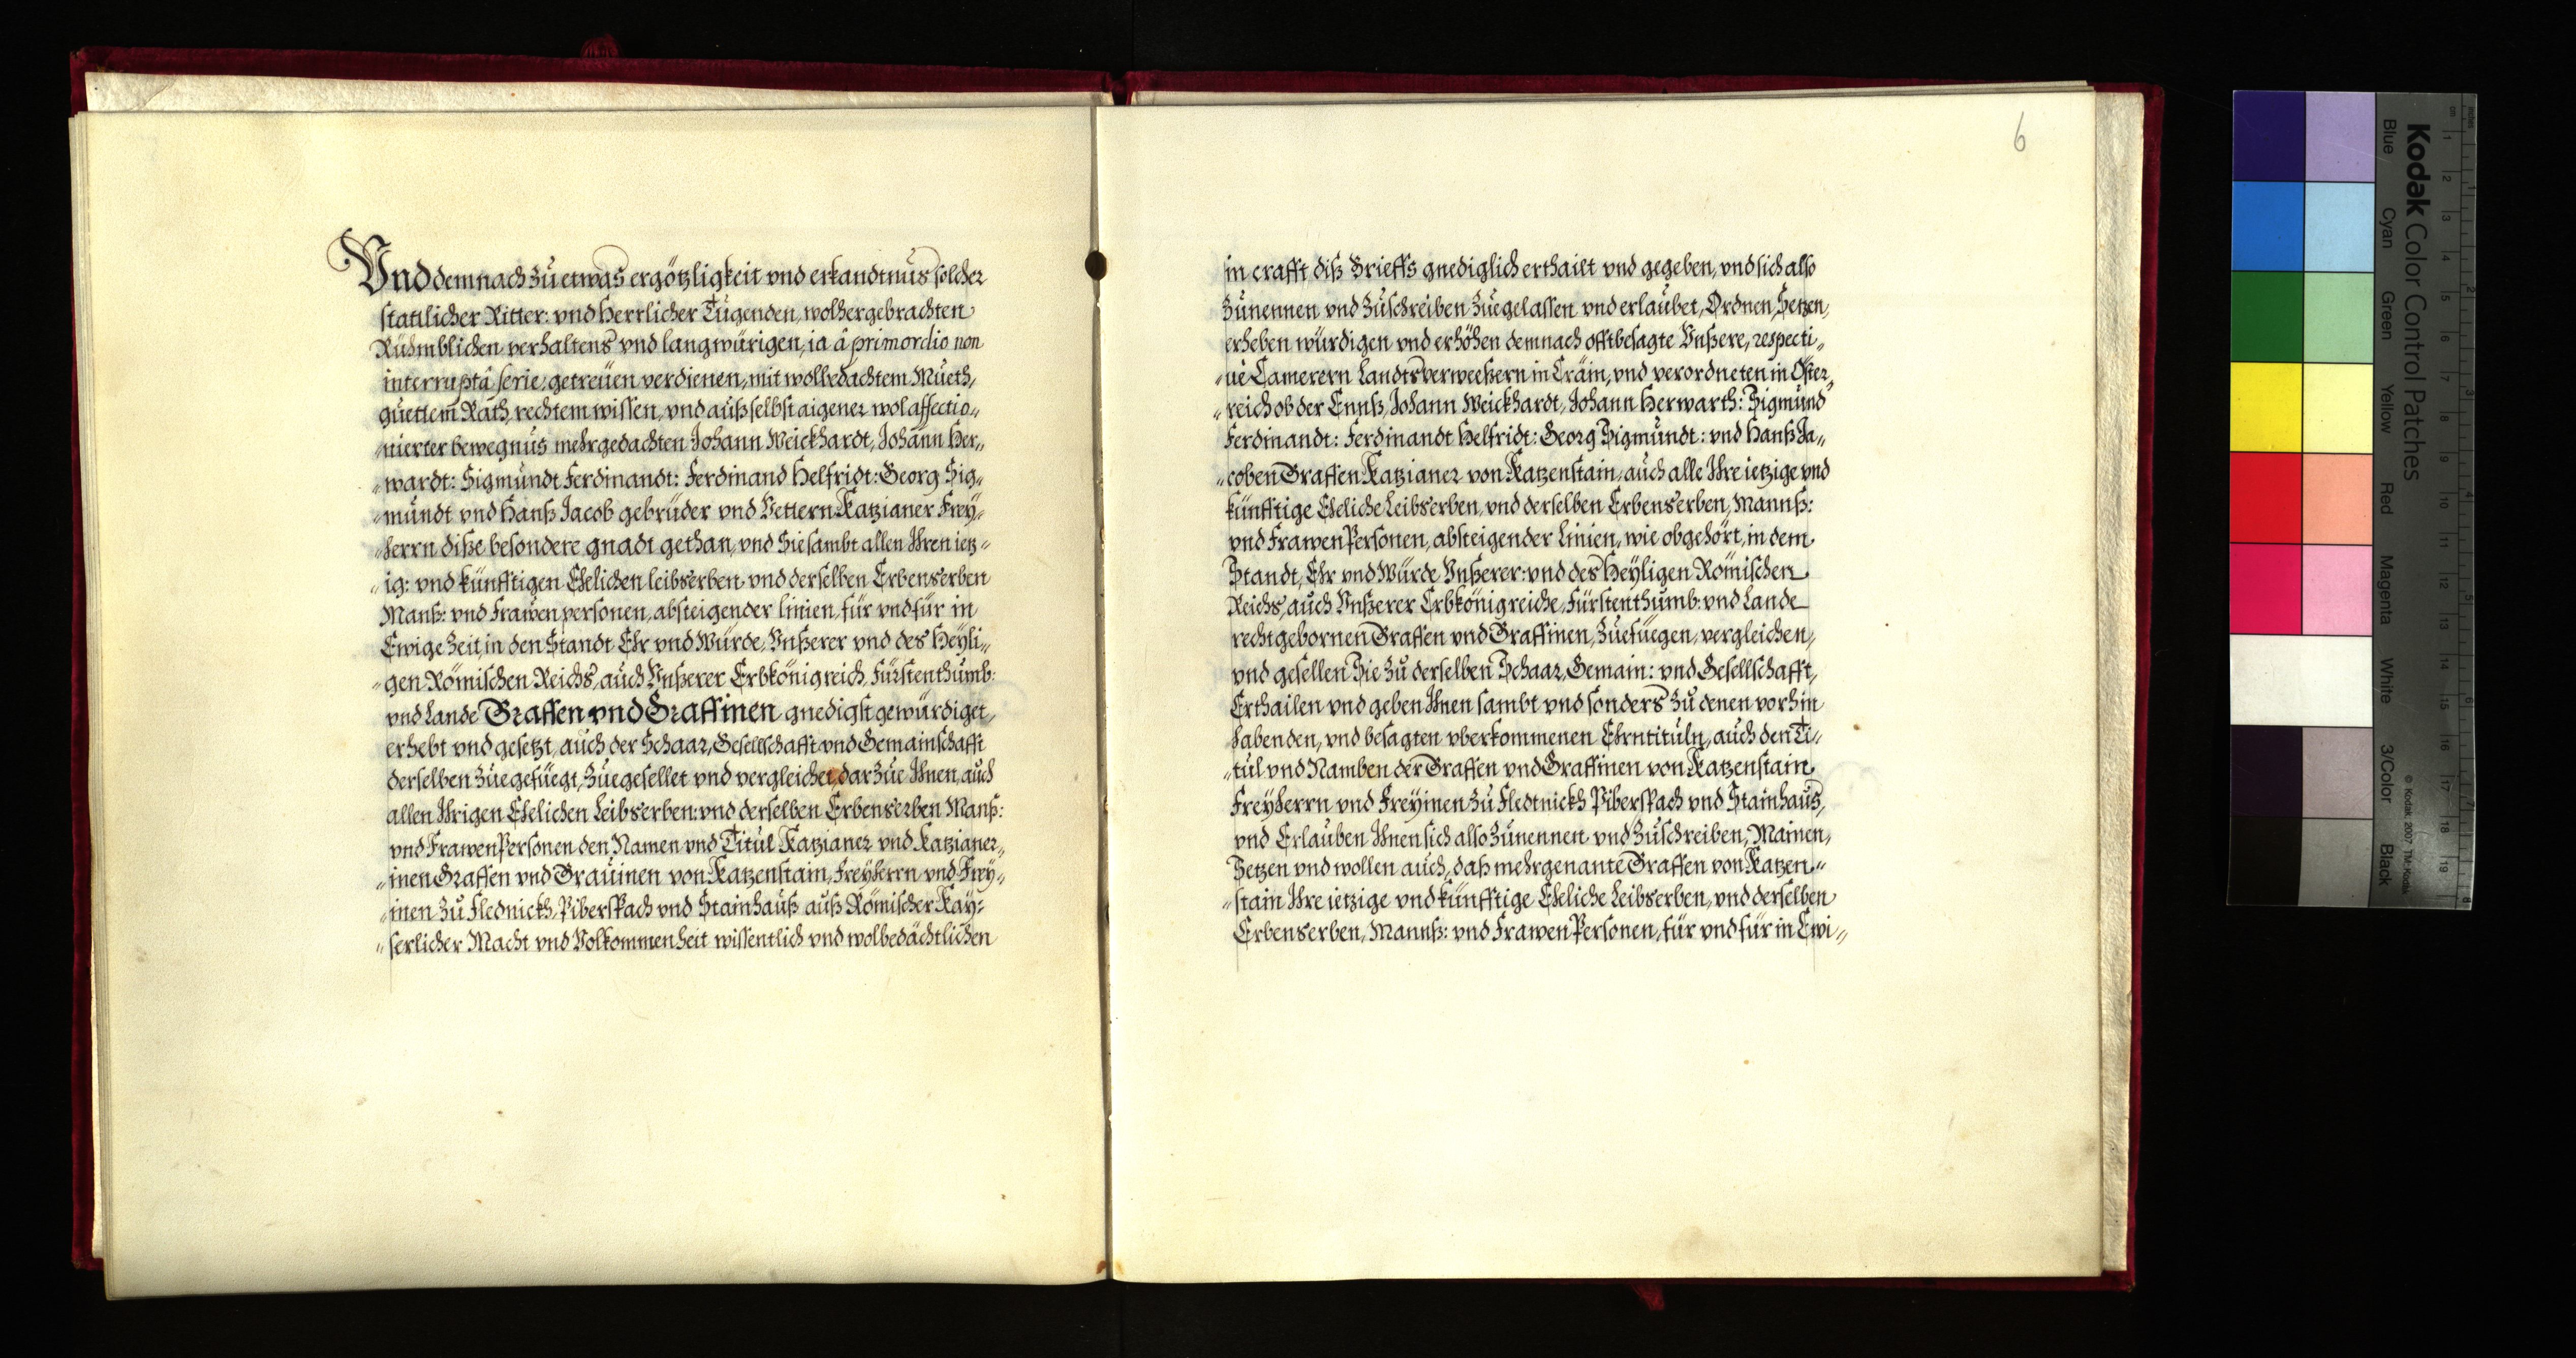 Vnd demnach zu etwas ergötzligkeit vnd erkandtnus solcher
stattlicher Ritter: vnd Herrlicher Tugenden, wolhergebrachten
Rühmblichen verhaltens vnd langwürigen, ia â primordio non
interruptâ serie, getreüen verdienen, mit wolbedachtem Mueth,
guettem Rath, rechtem wissen, vnd auß selbst aigener wol affectio„
„nierter bewegnus mehrgedachten Johann Weickhardt, Johann Her„
„wardt: Sigmundt Ferdinandt: Ferdinand Helfridt: Georg Sig„
„mundt vnd Hanß Jacob gebrüder vnd Vettern Katzianer Frey„
„herrn diße besondere gnadt gethan, vnd Sie sambt allen Ihren ietz„
„ig: vnd künfftigen Ehelichen leibserben vnd derselben Erbenserben
Manß: vnd Frawen personen, absteigender linien, für vnd für in
Ewige Zeit, in den Standt Ehr vnd Würde, Vnßerer vnd des Heyli„
„gen Römischen Reichs, auch Vnßerer Erbkönigreich, Fürstenthumb:
vnd Lande Graffen vnd Graffinen gnedigst gewürdiget,
erhebt vnd gesetzt, auch der Schaar, Gesellschafft vnd Gemainschafft
derselben Zuegefüegt, Zuegesellet vnd vergleichet, dar Zue Ihnen, auch
allen Ihrigen Ehelichen Leibserben: vnd derselben Erbenserben Manß:
vnd Frawen Personen den Namen vnd Titul Katzianer vnd Katzianer„
„inen Graffen vnd Grauinen von Katzenstain, Freyherrn vnd Frey„
„inen Zu Flednickh, Piberspach vnd Stainhauß auß Römischer Kay„
„serlicher Macht vnd Volkommenheit wissentlich vnd wolbedächtlichen
6
in crafft diß Brieffs gnediglich erthailt vnd gegeben, vnd sich also
Zunennen vnd Zuschreiben Zuegelassen vnd erlaubet, Ordnen, Setzen,
erheben würdigen vnd erhöhen demnach offtbesagte Vnßere, respecti„
„ue Camerern Landtsverweeßern in Crain, vnd verordneten in Öster„
„reich ob der Ennß, Johann Weickhardt, Johann Herwarth: Sigmund
Ferdinandt: Ferdinandt Helfridt: Georg Sigmundt: vnd Hanß Ja„
„coben Graffen Katzianer von Katzenstain, auch alle Ihre ietzige vnd
künfftige Eheliche Leibserben, vnd derselben Erbenserben, Mannß:
vnd Frawen Personen, absteigender Linien, wie obgehört, in dem
Standt, Ehr vnd Würde Vnßerer: vnd des Heyligen Römischen
Reichs, auch Vnßerer Erbkönigreiche, Fürstenthumb: vnd Lande
recht gebornen Graffen vnd Graffinen, Zuefüegen, vergleichen,
vnd gesellen Sie Zu derselben Schaar, Gemain: vnd Gesellschafft,
Erthailen vnd geben Ihnen sambt vnd sonders Zu denen vorhin
habenden, vnd besagten vberkommenen Ehrntituln, auch den Ti„
„tul vnd Namben der Graffen vnd Graffinen von Katzenstain
Freyherrn vnd Freyinen Zu Fledtnickh Piberspach vnd Stainhaus,
vnd Erlauben Ihnen sich also Zunennen vnd Zuschreiben, Mainen,
Setzen vnd wollen auch, daß mehrgenante Graffen von Katzen„
„stain Ihre ietzige vnd künfftige Eheliche Leibserben, vnd derselben
Erbenserben, Mannß: vnd Frawen Personen, für vnd für in Ewi„
Kodak Color Control Patches
Blue Cyan Green Yellow Red Magenta White 3/Color Black